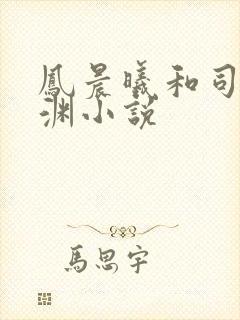 鳳晨曦和司
淵小說
馬思宇